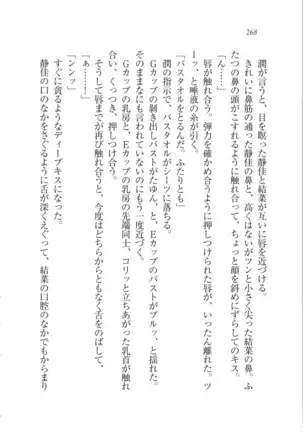 268
潤が言うと、目を瞑った静佳と結菜が互いに唇を近づける。
きれいに鼻筋の通った静佳の鼻と、高くはないがツンと小さく尖った結菜の鼻。ふ
たつの鼻の頭がこすれるように触れ合って、ちょっと顔を斜めにずらしてのキス。
「ん……」
唇が触れ合う。弾力を確かめ合うように押しつけられた唇が、いったん離れた。ツ
ーッ、と唾液の糸が引く。
「バスタオルをとるんだ。ふたりとも」
潤の指示で、バスタオルがシーツに落ちる。
Gカップの剥き出しバストがたゆん、と、Eカップのバストがプルッ、と揺れた。
そのままなにも言われていないのにもう一度近づく。
Gカップの乳房と、Eカップの乳房の先端同士、コリッと立ちあがった乳首が触れ
合い、くっつき、押しつけ合う。
「ぁ……！」
そうして唇までが再び触れ合うと、今度はどちらからともなく舌をのばして、
「ンンッ」
すぐに貪るようなディープキスになった。
静佳の口のなかをさぐるように舌が深くえぐって、結菜の口腔のなかでもからまり